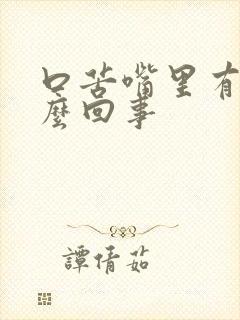 口苦嘴里有
麼回事
譚倩茹